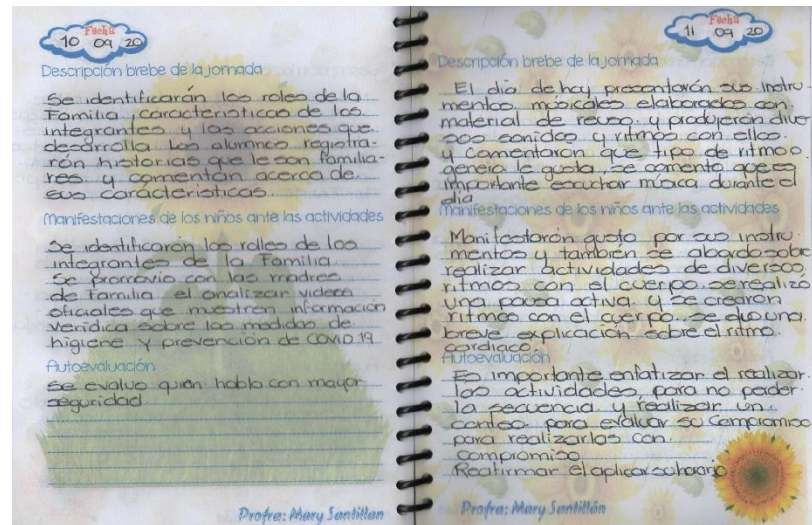 Fecha
10 09 20
Descripción brebe de la jornada
Se identificarán los roles de la
Familia, caracteristicas de los
integrantes y las acciones que
desarrolla. Los alumnos registra-
rón historias que le son familia-
res y comentan acerca de
sus características.
Manifestaciones de los niños ante las actividades
Se identificarón los rolles de los
integrantes de la Familia.
Se promovio con las madres
de Familia el analizar videos
oficiales que muestren información
veridica sobre las medidas de
higiene y prevención de COVID 19
Autoevaluación
Se evaluo quien hablo con mayor
seguridad
Profra: Mary Santillán
Fecha
11 09 20
Descripción brebe de la jornada
El dia de hoy presentarón sus instru-
mentos músicales elaborados con
material de reuso. y produjerón diver
sos sonidos y ritmos con ellos.
y comentaron que tipo de ritmo o
genero le gusta, se comento que es
importante escuchar música durante el
dia
Manifestaciones de los niños ante las actividades
Manifestarón gusto por sus instru-
mentos y también se abordo sobre
realizar actividades de diversos
ritmos con el cuerpo. se realizo
una pausa activa y se crearon
ritmos con el cuerpo. se dio una
breve explicación sobre el ritmo.
cardiaco.
Autoevaluación
Es importante enfatizar el realizar.
las actividades para no perder.
la secuencia y realizar un
conteo para evaluar su compromiso
para realizarlas con.
compromiso
Reafirmar el aplicar su horario
Profra: Mary Santillán